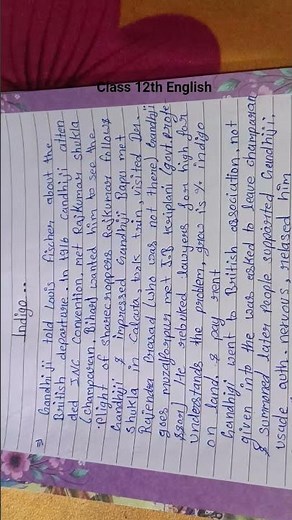 Class 12th English
Indigo...
Gandhiji told Louis Fischer about the
British departure. In 1916 Gandhiji atten
ded INC Convention, met Rajkumar shukla
(champaran, Bihar) wanted him to see the
plight of sharecroppers Rajkumar follows
Gandhiji & impressed Gandhiji Bapu met
Shukla in Calcuta took train, visited Dr.
Rajendra Prasad (who was not there) Gandhiji
goes muzaffarpur met J.B kriplani (govt. profe
ssor) He rebuked lawyers for high fee
Understands the problem, grow is % indigo
on land & pay rent
Gandhiji went to British association, not
given info the was asked to leave champaran
& summoned later people supported Gandhiji.
auth. nervous, relased him